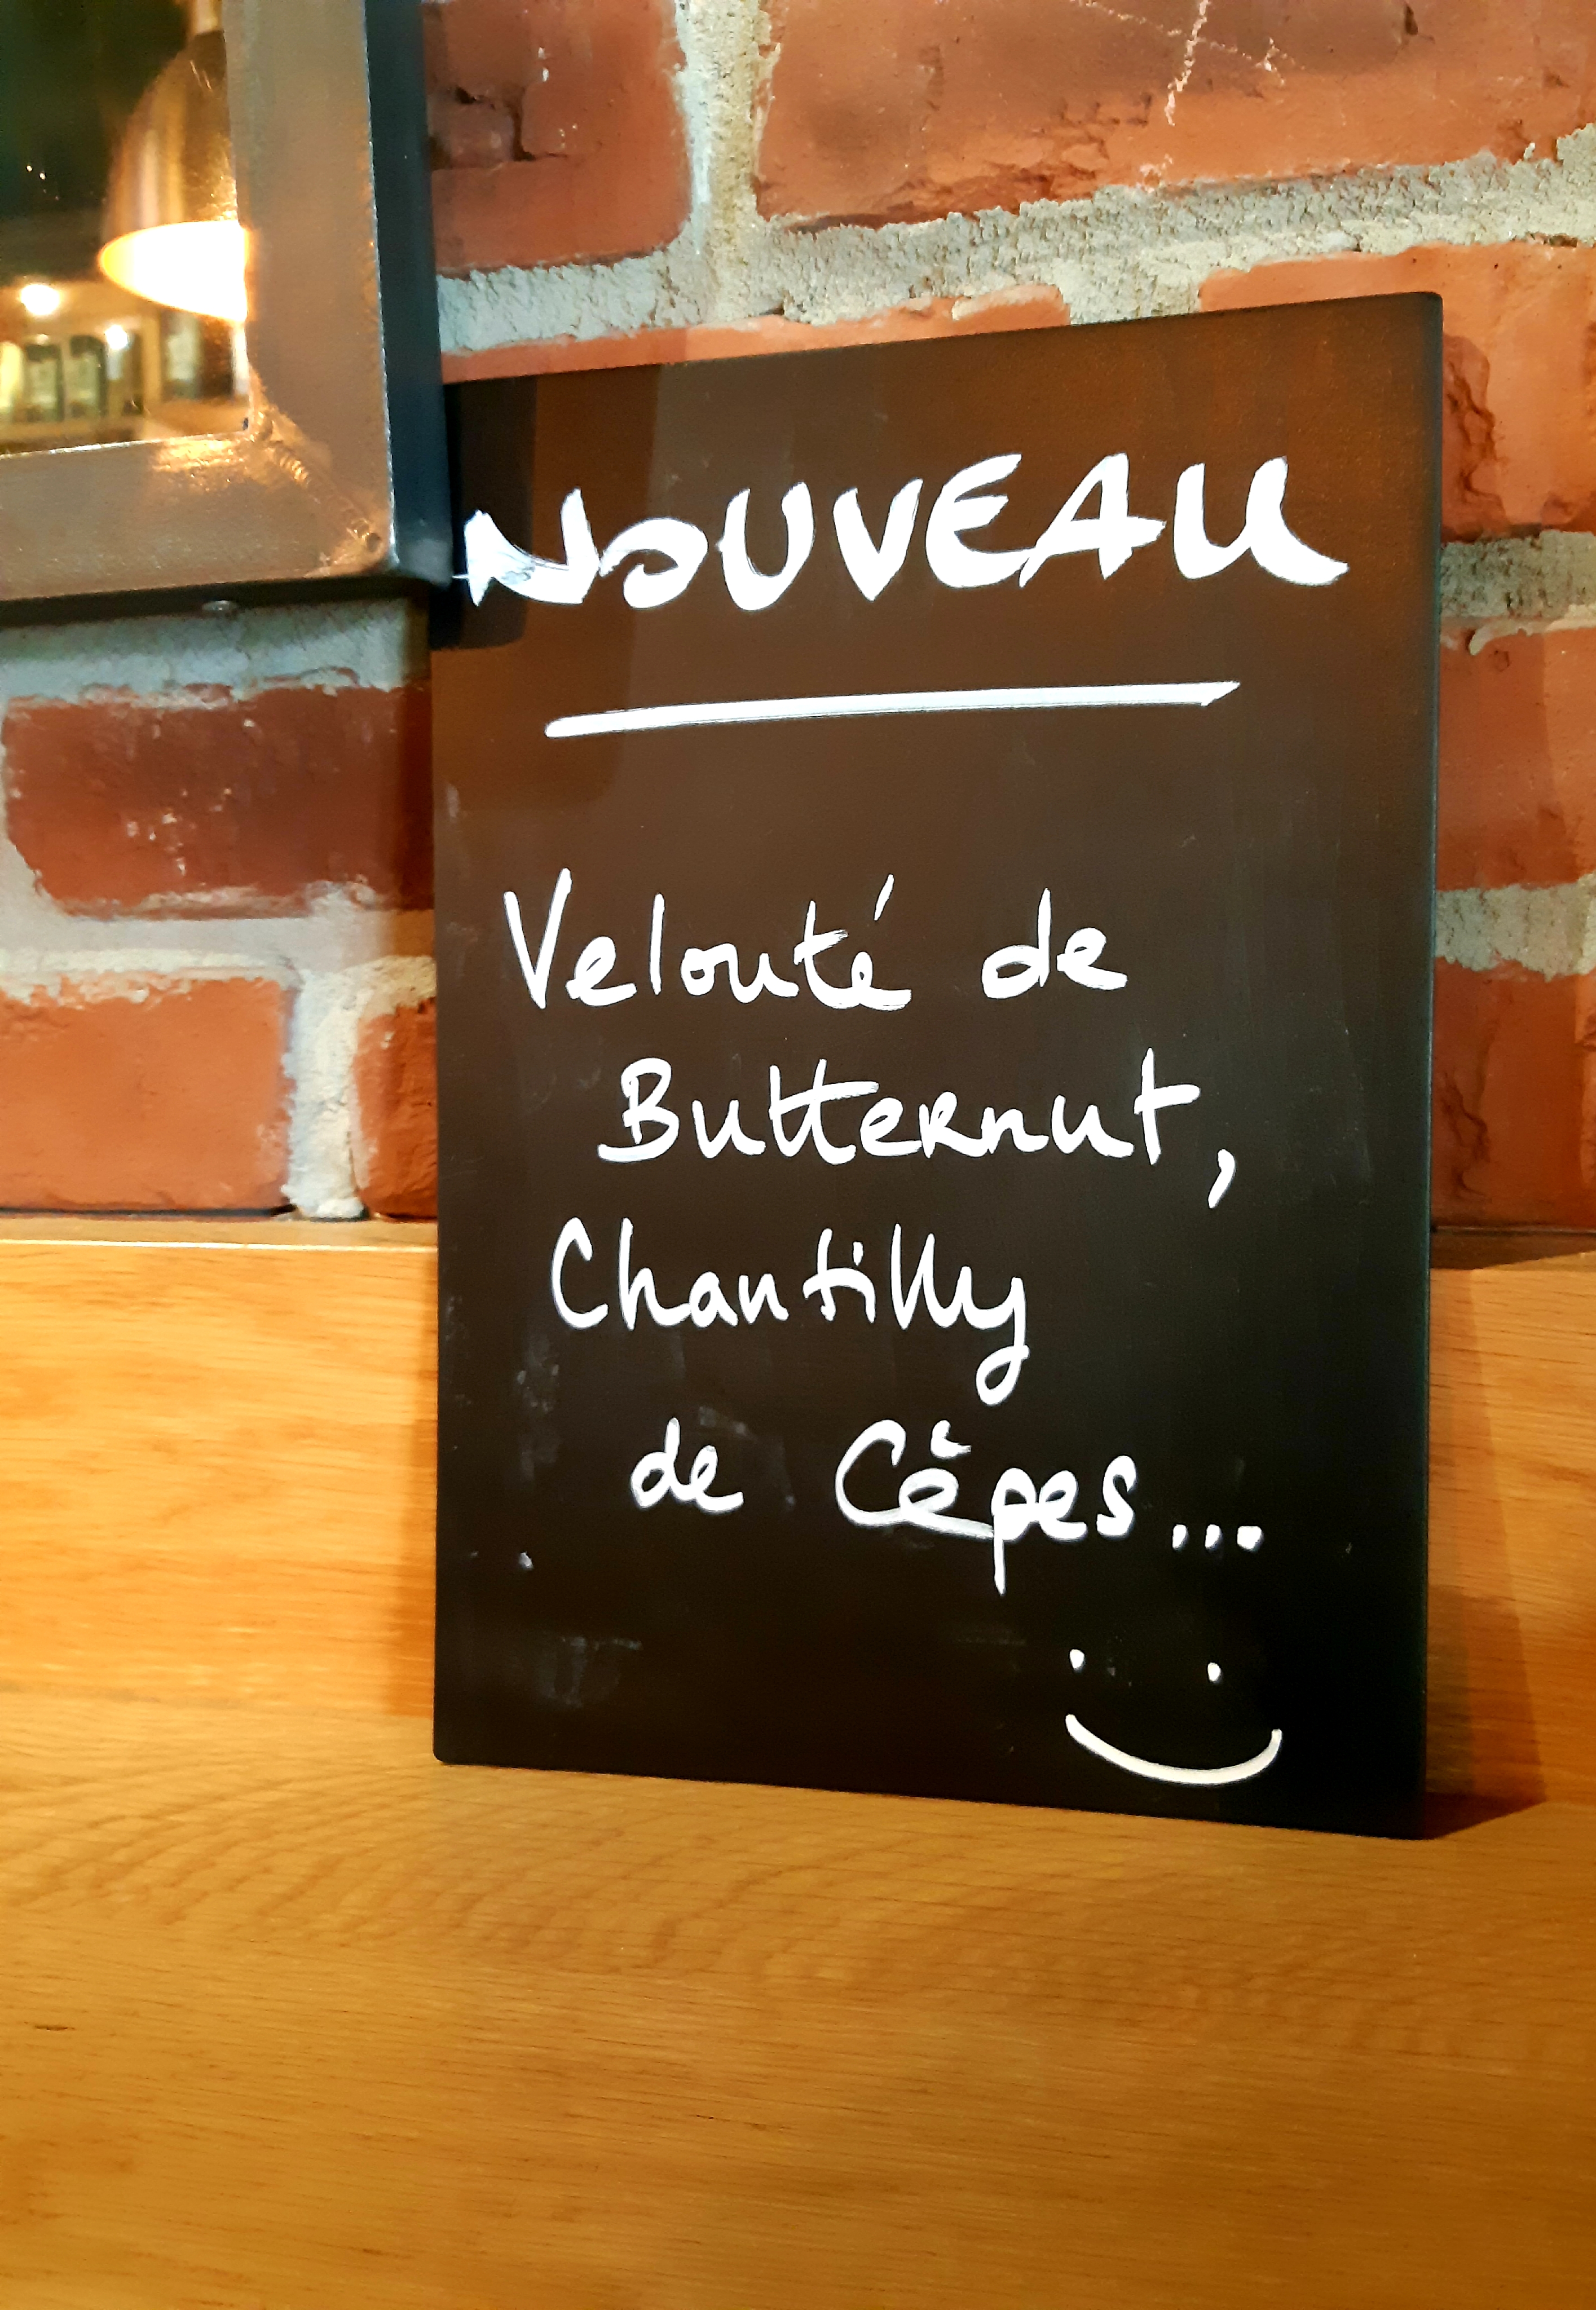 NOUVEAU
Velouté de
Butternut,
Chantilly
de Cèpes...